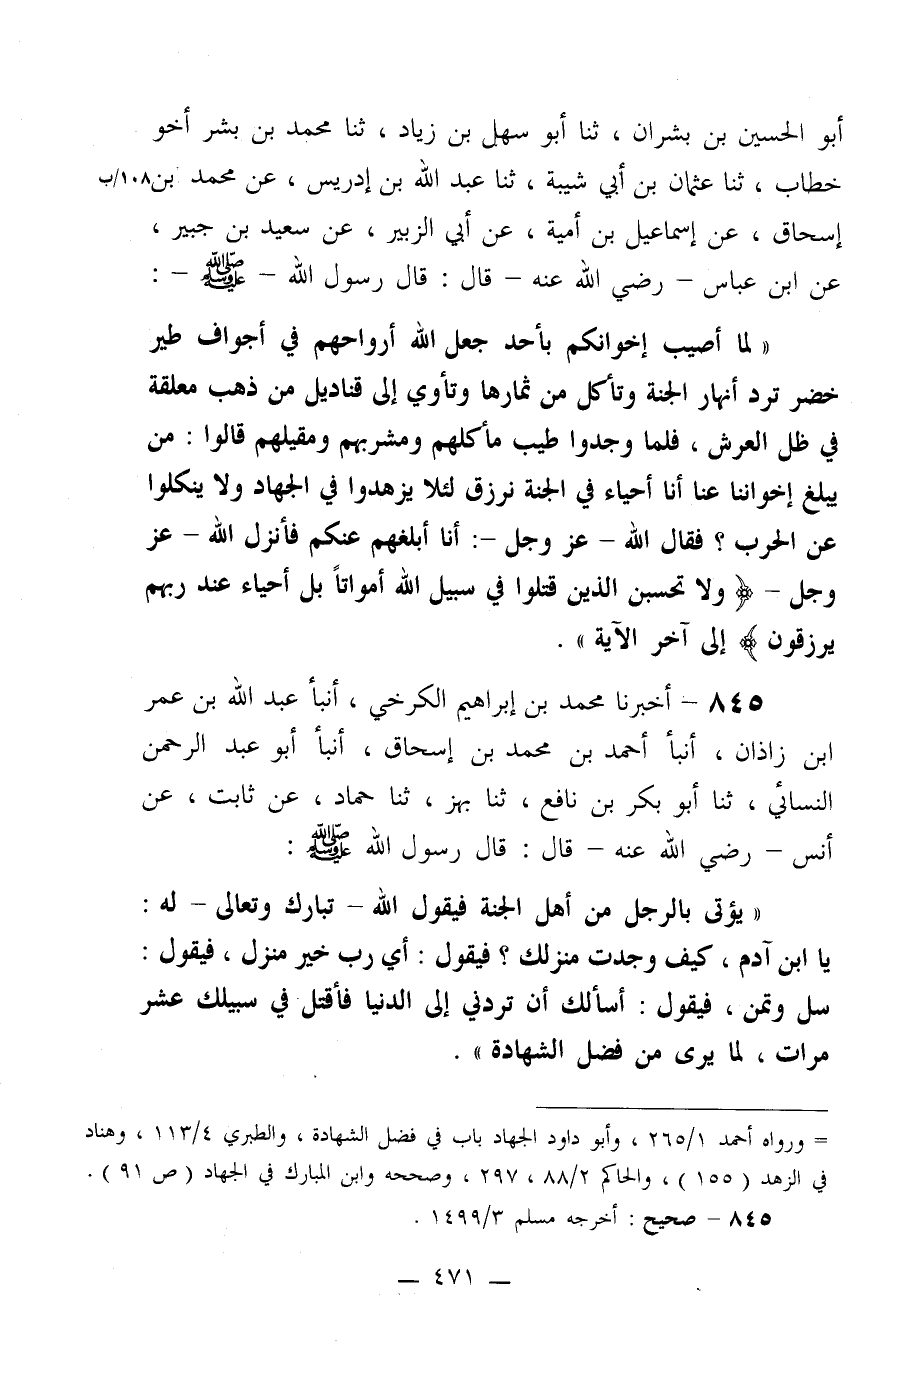 أبو الحسين بن بشران ، ثنا أبو سهل بن زياد ، ثنا محمد بن بشر أخو
خطاب ، ثنا عثمان بن أبي شيبة ، ثنا عبد الله بن إدريس ، عن محمد بن ١٠٨/ب
إسحاق ، عن إسماعيل بن أمية ، عن أبي الزبير ، عن سعيد بن جبير ،
عن ابن عباس – رضي الله عنه – قال : قال رسول الله – ﷺ – :
« لما أصيب إخوانكم بأحد جعل الله أرواحهم في أجواف طير
خضر ترد أنهار الجنة وتأكل من ثمارها وتأوي إلى قناديل من ذهب معلقة
في ظل العرش ، فلما وجدوا طيب مأكلهم ومشربهم ومقيلهم قالوا : من
يبلغ إخواننا عنا أنا أحياء في الجنة نرزق لئلا يزهدوا في الجهاد ولا ينكلوا
عن الحرب ؟ فقال الله – عز وجل –: أنا أبلغهم عنكم فأنزل الله – عز
وجل – ﴿ ولا تحسبن الذين قتلوا في سبيل الله أمواتاً بل أحياء عند ربهم
يرزقون ﴾ إلى آخر الآية » .
٨٤٥ – أخبرنا محمد بن إبراهيم الكرخي ، أنبأ عبد الله بن عمر
ابن زاذان ، أنبأ أحمد بن محمد بن إسحاق ، أنبأ أبو عبد الرحمن
النسائي ، ثنا أبو بكر بن نافع ، ثنا بهز ، ثنا حماد ، عن ثابت ، عن
أنس – رضي الله عنه – قال : قال رسول الله ﷺ :
« يؤتى بالرجل من أهل الجنة فيقول الله – تبارك وتعالى – له :
يا ابن آدم ، كيف وجدت منزلك ؟ فيقول : أي رب خير منزل ، فيقول :
سل وتمن ، فيقول : أسألك أن تردني إلى الدنيا فأقتل في سبيلك عشر
مرات ، لما يرى من فضل الشهادة » .
= ورواه أحمد ٢٦٥/١ ، وأبو داود الجهاد باب في فضل الشهادة ، والطبري ١١٣/٤ ، وهناد
في الزهد ( ١٥٥ ) ، والحاكم ٨٨/٢ ، ٢٩٧ ، وصححه وابن المبارك في الجهاد ( ص ٩١ ) .
٨٤٥ – صحيح : أخرجه مسلم ١٤٩٩/٣ .
— ٤٧١ —